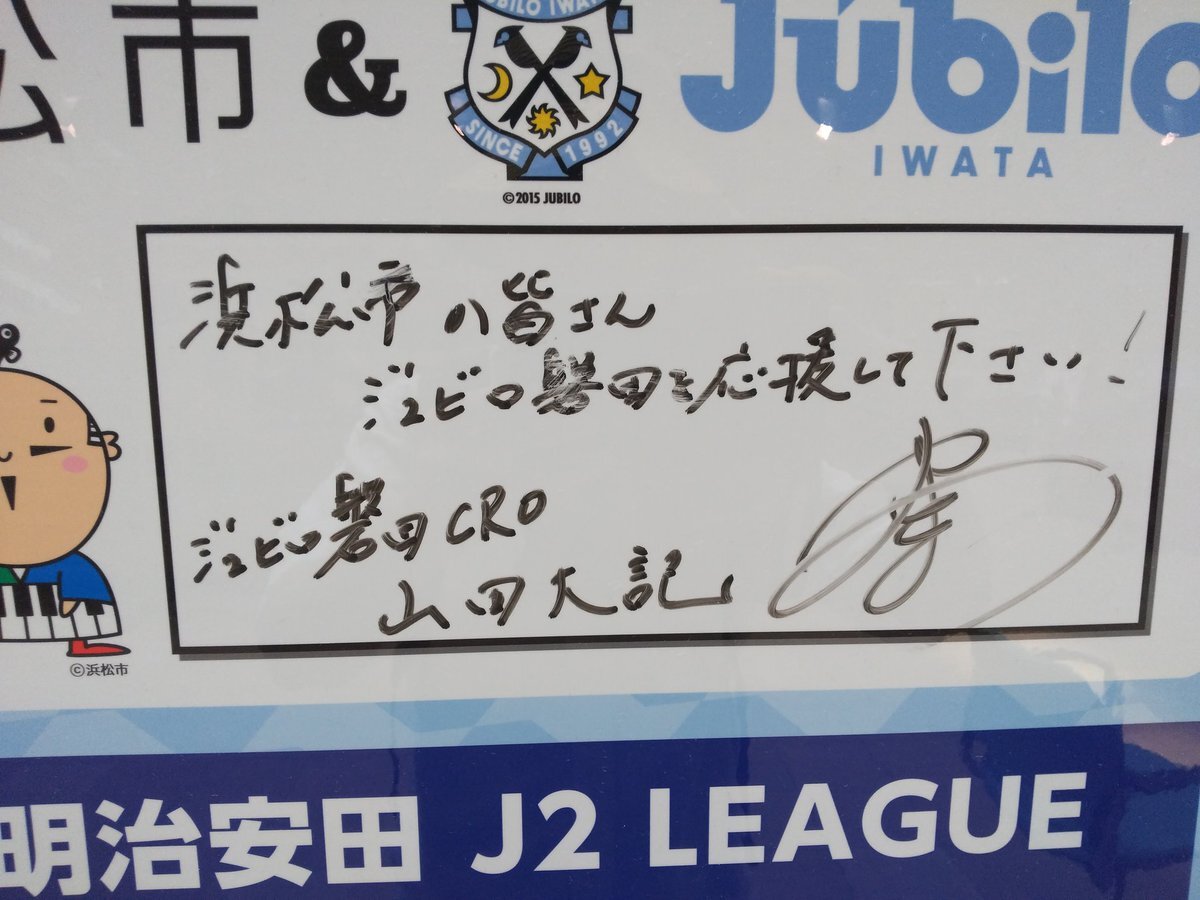 松市 & Jubilo
IWATA
JUBILO IWATA
SINCE 1992
©2015 JUBILO
浜松市の皆さん
ジュビロ磐田を応援して下さい!
ジュビロ磐田CRO
山田大記
©浜松市
明治安田 J2 LEAGUE